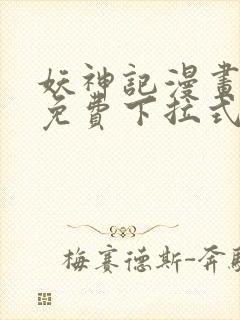 妖神記漫畫
免費下拉式
梅賽德斯-奔馳